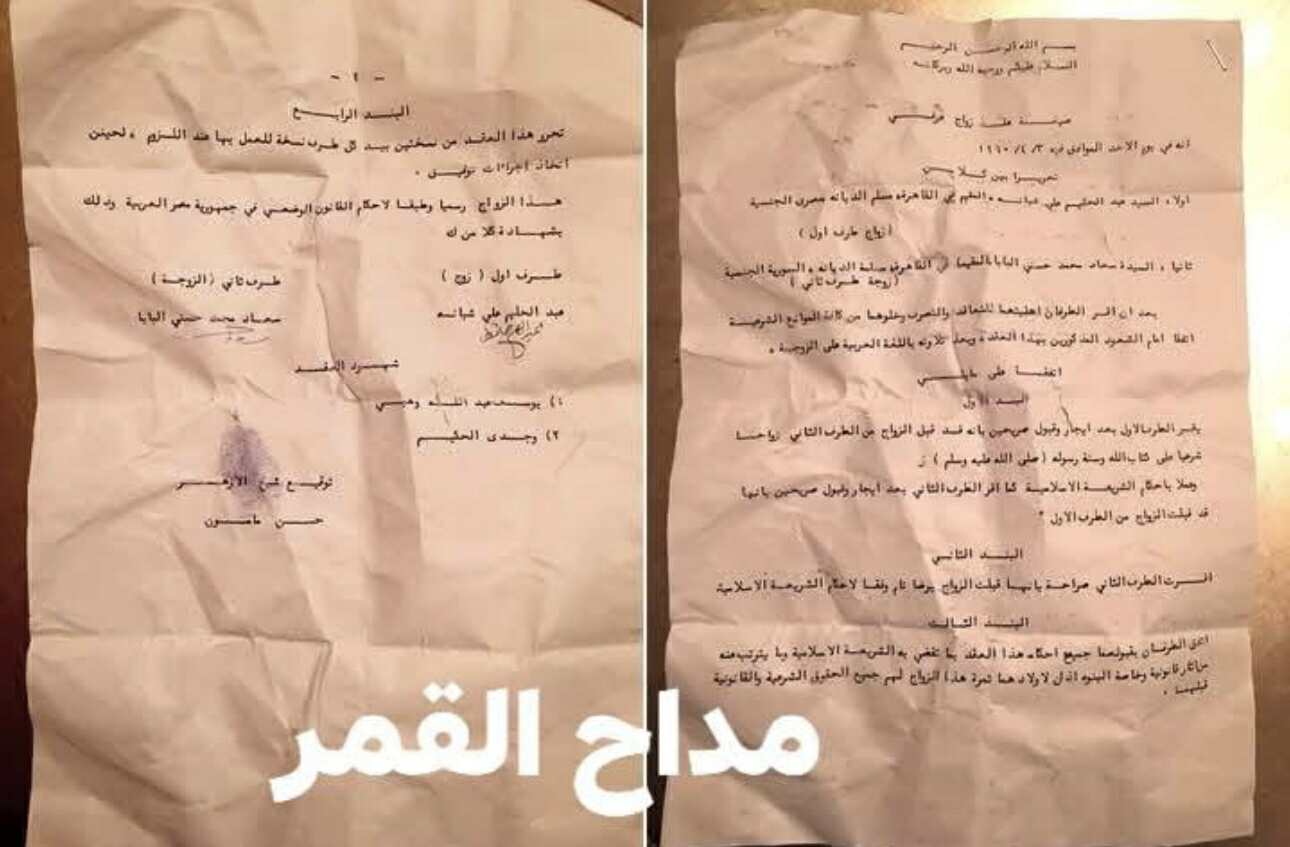 بسم الله الرحمن الرحيم
السلام عليكم ورحمة الله وبركاته
صيغة عقد زواج عرفي
انه في يوم الاحد الموافق فيه ٣/ ٤/ ١٩٦٠
تحريرا بين كلا من
اولا ، السيد عبد الحليم علي شبانه ، المقيم في القاهرة، مسلم الديانه مصرى الجنسية
(زواج طرف اول )
ثانيا ، السيدة سعاد محمد حسني البابا، المقيمة في القاهرة، مسلمة الديانه ، السورية الجنسية
(زوجة طرف ثاني )
بعد ان اقر الطرفان اهليتهما للتعاقد والتصرف وخلوهما من كافة الموانع الشرعية
اتفقا امام الشهود المذكورين بهذا العقد ، وبعد تلاوته باللغة العربية على الزوجية ،
اتفقا على مايلي
البند الاول
يقر الطرف الاول بعد ايجاز وقبول صريحين بانه قد قبل الزواج من الطرف الثاني زواجا
شرعيا على كتاب الله وسنة رسوله (صلى الله عليه وسلم )
وعملا باحكام الشريعة الاسلامية كما اقر الطرف الثاني بعد ايجاز وقبول صريحين بانها
قد قبلت الزواج من الطرف الاول "
البند الثاني
اقرت الطرف الثاني صراحة بانها قبلت الزواج برضا تام وفقا لاحكام الشريعة الاسلامية
البند الثالث
اتفق الطرفان بقبولهما جميع احكام هذا العقد بما تقضي به الشريعة الاسلامية وما يترتب عنه
من اثار قانونية وخاصة البنوه اذ ان لاولاد هما ثمرة هذا الزواج لهم جميع الحقوق الشرعية والقانونية
قبلهما .
- ٤ -
البند الرابع
تحرر هذا العقد من نسختين بيد كل طرف نسخة للعمل بها عند اللزوم ، لحين
اتخاذ اجراءات توثيق .
هذا الزواج رسميا وطبقا لاحكام القانون الوضعي في جمهورية مصر العربية وذلك
بشهادة كلا من ك
طرف اول ( زوج ) طرف ثاني (الزوجة )
عبد الحليم علي شبانه سعاد محمد حسني البابا
شهود العقد
١) يوسف عبد الله وهبي
٢) وجدى الحكيم
توقيع شيخ الازهر
حسن مامون
مداح القمر